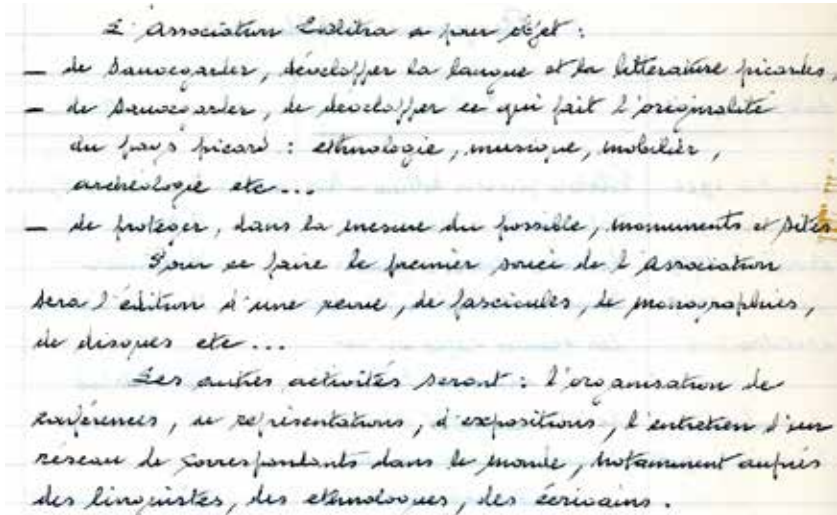 L'Association Eklitra a pour objet :
— de sauvegarder, développer la langue et la littérature picardes,
— de sauvegarder, de développer ce qui fait l'originalité
du pays picard : ethnologie, musique, mobilier,
archéologie etc...
— de protéger, dans la mesure du possible, monuments et sites
Pour ce faire le premier souci de l'Association
sera l'édition d'une revue, de fascicules, de monographies,
de disques etc...
Les autres activités seront : l'organisation de
conférences, de représentations, d'expositions, l'entretien d'un
réseau de correspondants dans le monde, notamment auprès
des linguistes, des ethnologues, des écrivains.